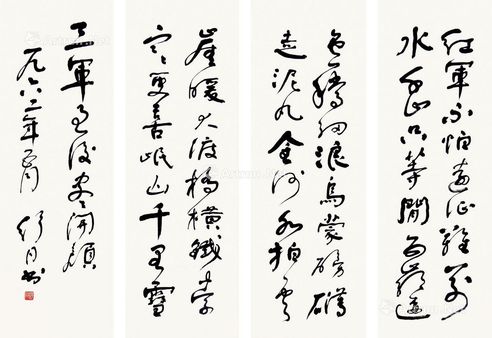 紅軍不怕遠征難萬
水千山只等閒五嶺逶
迤騰細浪烏蒙磅礴
走泥丸金沙水拍雲
崖暖大渡橋橫鐵索
寒更喜岷山千里雪
三軍過後盡開顏
一九六二年